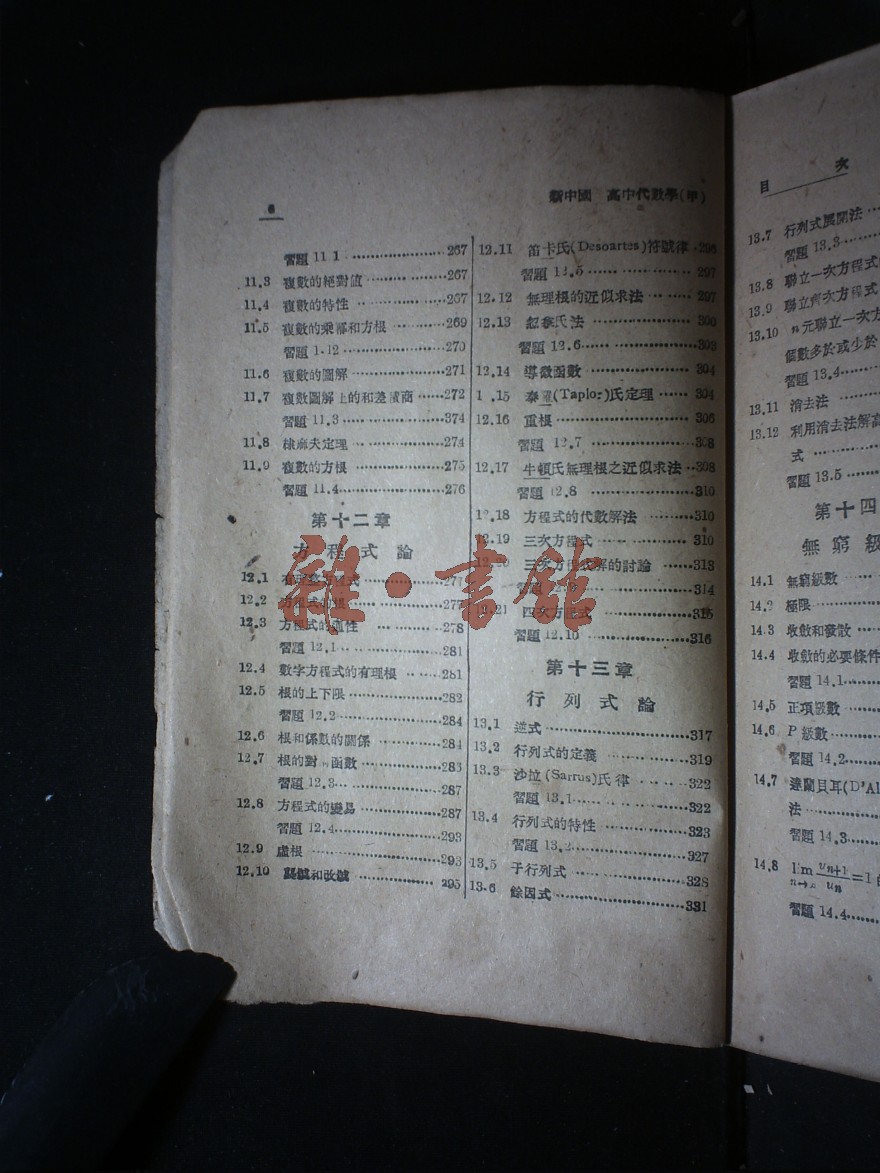 6
新中國 高中代數學(甲)
習題 11 1 ······ 267
11.3 複數的絕對值 ······ 267
11.4 複數的特性 ······ 267
11.5 複數的乘冪和方根 ······ 269
習題 1·12 ······ 270
11.6 複數的圖解 ······ 271
11.7 複數圖解上的和差積商 ······ 272
習題 11.3 ······ 374
11.8 棣麻夫定理 ······ 274
11.9 複數的方根 ······ 275
習題 11.4 ······ 276
第十二章
方程式論
12.1 ······ 277
12.2 方程式的根 ······ 277
12.3 方程式的通性 ······ 278
習題 12.1 ······ 281
12.4 數字方程式的有理根 ······ 281
12.5 根的上下限 ······ 282
習題 12.2 ······ 284
12.6 根和係數的關係 ······ 284
12.7 根的對 函數 ······ 283
習題 12.3 ······ 287
12.8 方程式的變易 ······ 287
習題 12.4 ······ 293
12.9 虛根 ······ 293
12.10 和改號 ······ 295
12.11 笛卡氏(Desoartes)符號律 · 296
習題 12.5 ······ 297
12.12 無理根的近似求法 ······ 297
12.13 氏法 ······ 300
習題 12.6 ······ 303
12.14 導數函數 ······ 304
1 .15 泰 (Taplor)氏定理 ······ 304
12.16 重根 ······ 306
習題 12.7 ······ 308
12.17 牛頓氏無理根之近似求法 ·· 308
習題 12.8 ······ 310
12.18 方程式的代數解法 ······ 310
12.19 三次方程式 ······ 310
12.20 三次方程式解的討論 ······ 313
習題 ······ 314
12.21 四次方程式 ······ 315
習題 12.10 ······ 316
第十三章
行列式論
13.1 逆式 ······ 317
13.2 行列式的定義 ······ 319
13.3 沙拉(Sarrus)氏律 ······ 322
習題 13.1 ······ 322
13.4 行列式的特性 ······ 323
習題 13.2 ······ 327
13.5 子行列式 ······ 328
13.6 餘因式 ······ 331
雜·書館
目 次
13.7 行列式展開法 ······
習題 13.3 ······
13.8 聯立一次方程式
13.9 聯立齊次方程式
13.10 n元聯立一次方
個數多於或少於
習題 13.4 ······
13.11 消去法 ······
13.12 利用消去法解高
式 ······
習題 13.5 ······
第十四
無窮級
14.1 無窮級數 ······
14.2 極限 ······
14.3 收斂和發散 ······
14.4 收斂的必要條件
習題 14.1 ······
14.5 正項級數 ······
14.6 P 級數 ······
習題 14.2 ······
14.7 達蘭貝耳(D'Al
法 ······
習題 14.3 ······
14.8 lim u_{n+1}/u_n = 1 的
習題 14.4 ······